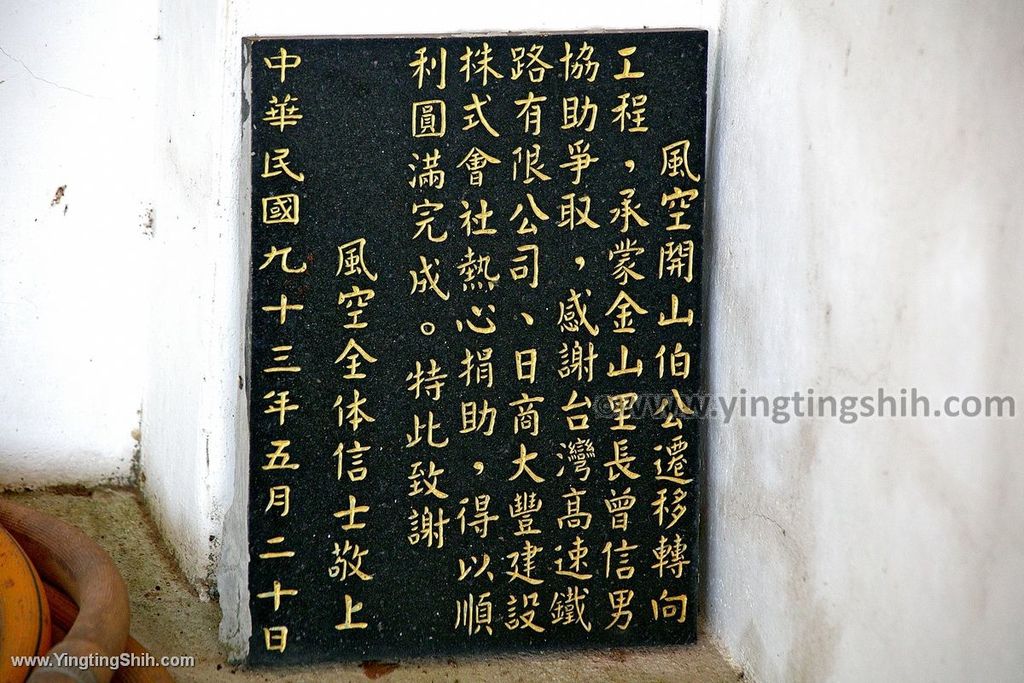 風空開山伯公遷移轉向
工程，承蒙金山里長曾信男
協助爭取，感謝台灣高速鐵
路有限公司、日商大豐建設
株式會社熱心捐助，得以順
利圓滿完成。特此致謝
風空全体信士敬上
中華民國九十三年五月二十日
©www.yingtingshih.com
www.YingtingShih.com